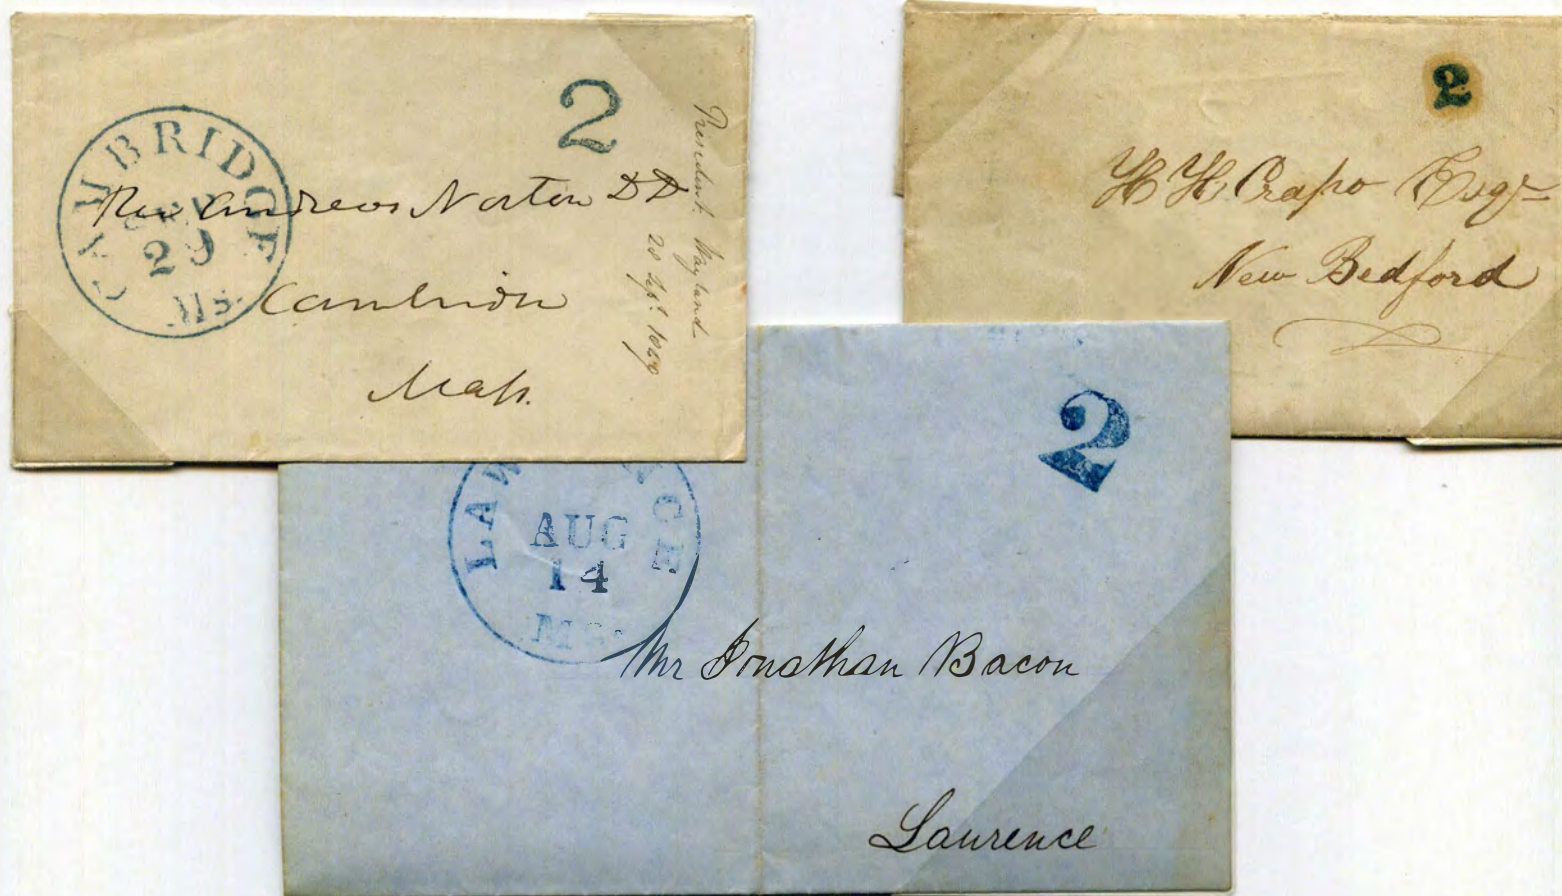 CAMBRIDGE
SEP
29
Ms.
2
Rev Andrews Norton DD
Cambridge
Mass.
President Wayland
20 Sept. 1849
2
H H Crapo Esqr
New Bedford
2
LAW NCE
AUG
14
MS.
Mr Jonathan Bacon
Lawrence